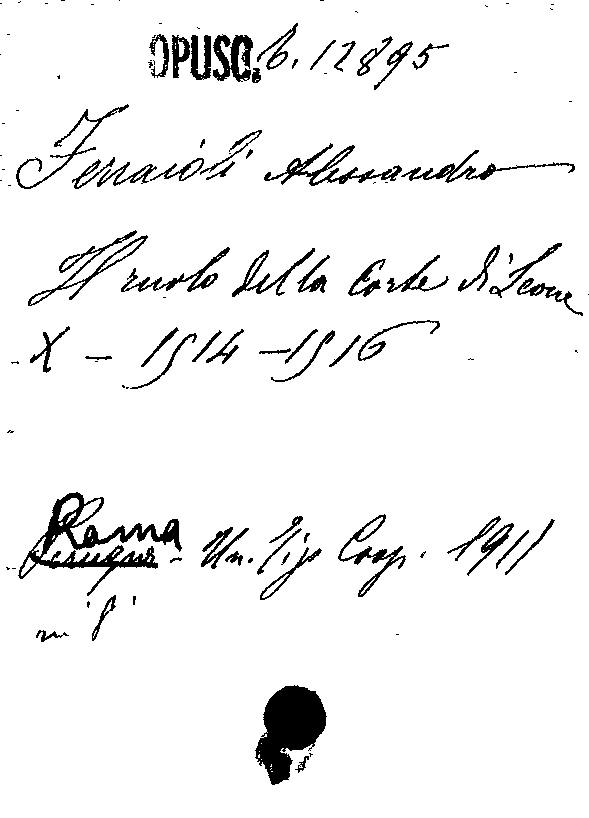 OPUSC. B. 12895
Ferraioli Alessandro
Il ruolo della Corte di Leone
X - 1514 - 1516
Roma
Perugia - Un. Tip. Coop. 1911
in 8°